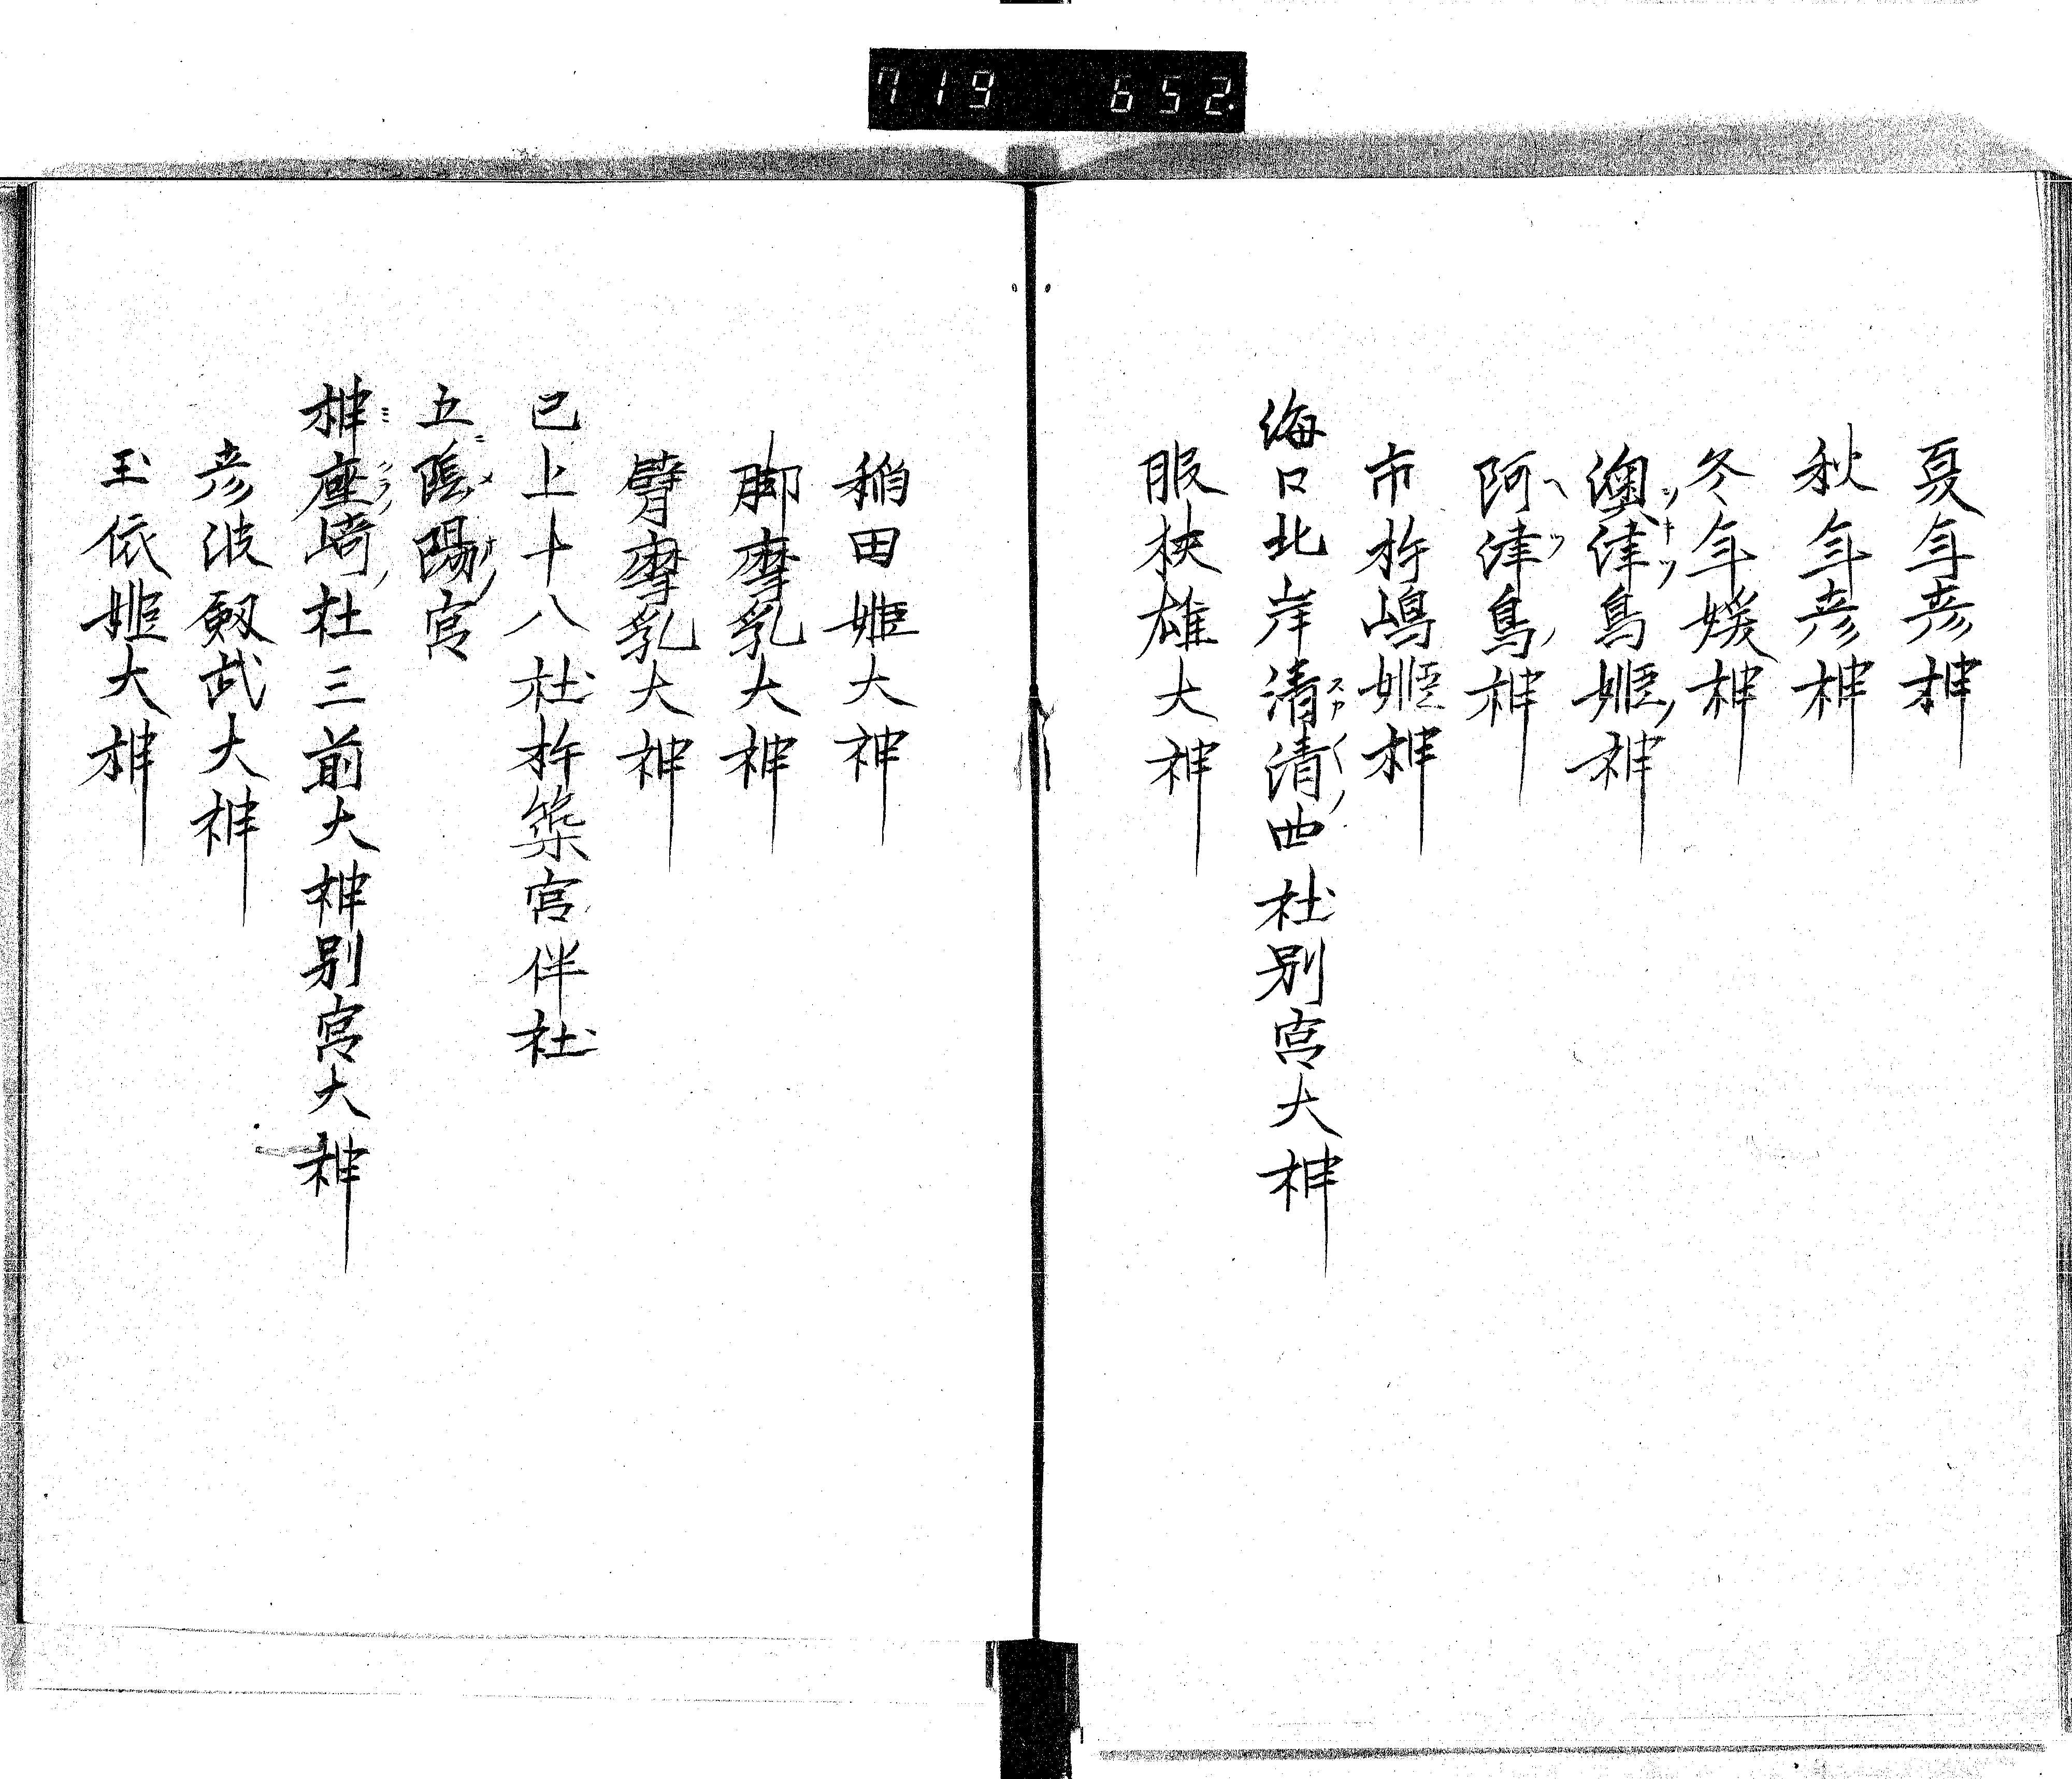 719 652
夏年彦神
秋年彦神
冬年媛神
澳津島姫神
阿津島神
市杵嶋姫神
海口北岸清清西社別宮大神
服狭雄大神
稲田姫大神
脚摩乳大神
臂摩乳大神
已上十八社杵築宮伴社
五陰陽宮
神座崎社三前大神別宮大神
彦波剱武大神
玉依姫大神